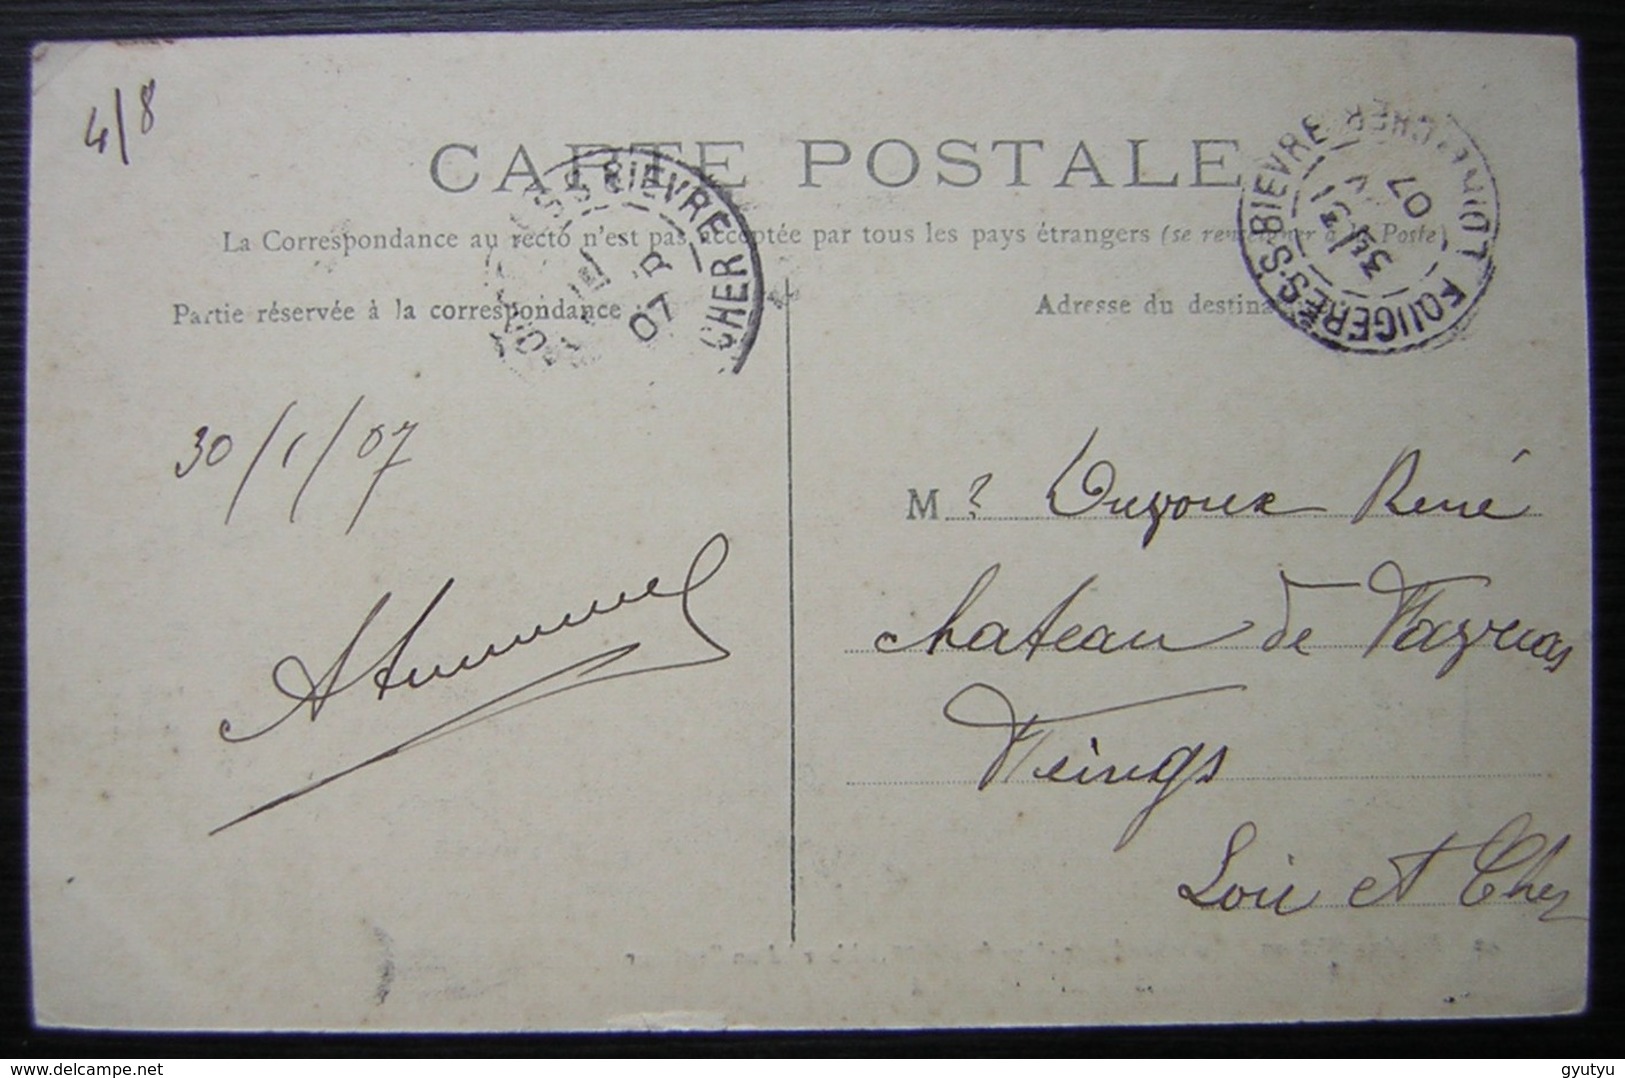 4/8
CARTE POSTALE
La Correspondance au recto n'est pas acceptée par tous les pays étrangers (se renseigner à la Poste)
Partie réservée à la correspondance
Adresse du destina
S-S-BIEVRE
CHER
07
FOUGERES-S-BIEVRE LOIR-ET-CHER
31
07
30/1/07
M r René
chateau de
Feings
Loir et Cher
gyutyu